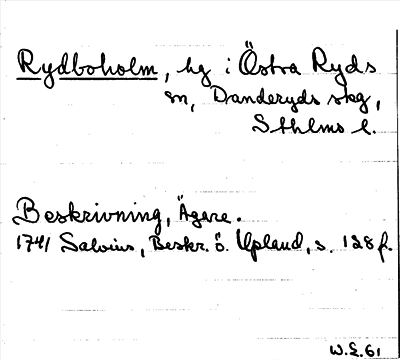 Rydboholm, hg i Östra Ryds
sn, Danderyds skg,
Sthlms l.
Beskrivning, Ägare.
1741 Salvius, Beskr. ö. Upland, s. 128 f.
W.E. 61